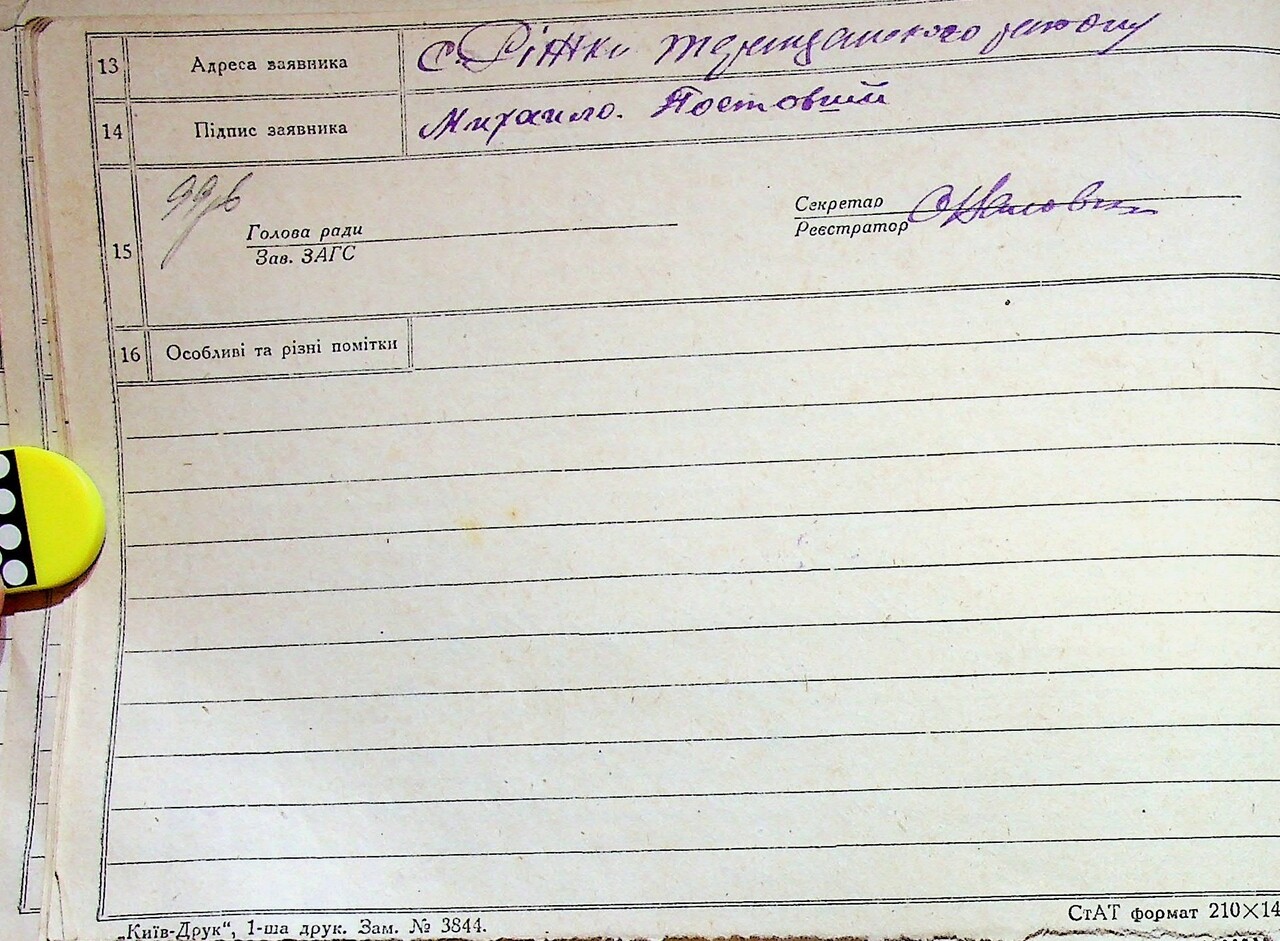 13 Адреса заявника с. Ріжки Таращанського району
14 Підпис заявника Михайло. Постовий
15
Голова ради
Зав. ЗАГС
Секретар
Реєстратор
16 Особливі та різні помітки
„Київ-Друк“, 1-ша друк. Зам. № 3844.
СтАТ формат 210×14